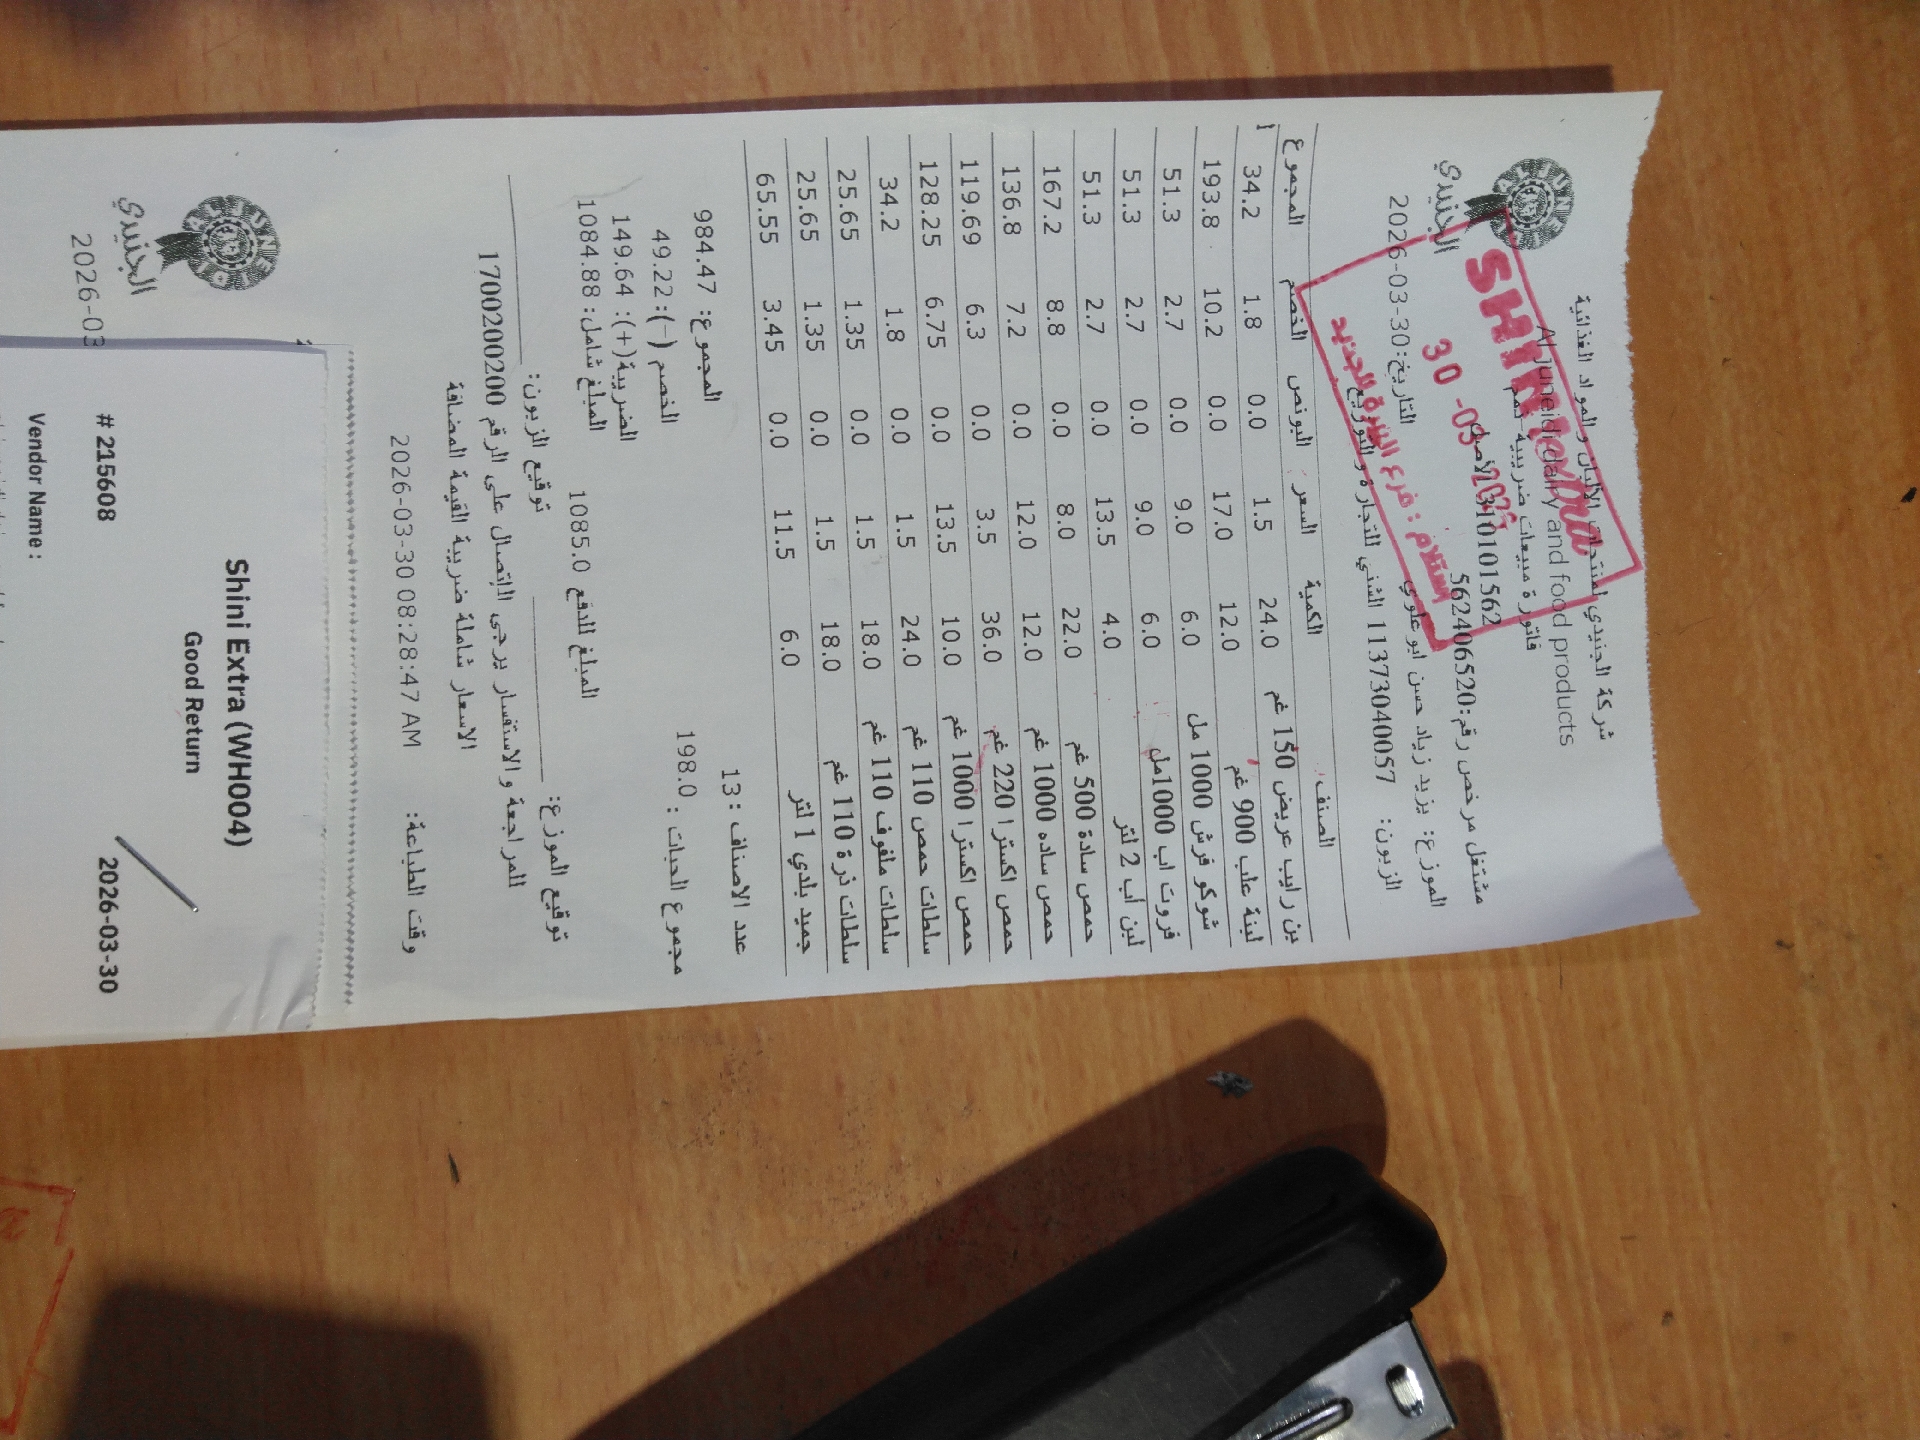 شركة الجنيدي لمنتجات الألبان والمواد الغذائية
Al Juneidi dairy and food products
فاتورة مبيعات ضريبية رقم
310101562 الاصل
مشتغل مرخص رقم:562406520
الجنيدي
الموزع: يزيد زياد حسن ابو علوي
التاريخ:30-03-2026
الزبون: 11373040057 الشني للتجارة و التوزيع
SHINI extra
30 -03- 2026
استلام : فرع البيرة الجديد
الصنف الكمية السعر البونص الخصم المجموع
بن رايب عريض 150 غم 24.0 1.5 0.0 1.8 34.2
لبنة علب 900 غم 12.0 17.0 0.0 10.2 193.8
شوكو فرش 1000 مل 6.0 9.0 0.0 2.7 51.3
فروت اب 1000مل 6.0 9.0 0.0 2.7 51.3
لبن أب 2 لتر 4.0 13.5 0.0 2.7 51.3
حمص سادة 500 غم 22.0 8.0 0.0 8.8 167.2
حمص ساده 1000 غم 12.0 12.0 0.0 7.2 136.8
حمص اكسترا 220 غم 36.0 3.5 0.0 6.3 119.69
حمص اكسترا 1000 غم 10.0 13.5 0.0 6.75 128.25
سلطات حمص 110 غم 24.0 1.5 0.0 1.8 34.2
سلطات ملفوف 110 غم 18.0 1.5 0.0 1.35 25.65
سلطات ذرة 110 غم 18.0 1.5 0.0 1.35 25.65
جميد بلدي 1 لتر 6.0 11.5 0.0 3.45 65.55
عدد الاصناف :13
المجموع: 984.47
مجموع الحبات : 198.0
الخصم (-): 49.22
الضريبة(+): 149.64
المبلغ شامل: 1084.88
المبلغ للدفع 1085.0
توقيع الموزع:
توقيع الزبون:
للمراجعة والاستفسار يرجى الاتصال على الرقم 1700200200
الاسعار شاملة ضريبة القيمة المضافة
وقت الطباعة: 2026-03-30 08:28:47 AM
الجنيدي
2026-03
Shini Extra (WH004)
Good Return
# 215608
2026-03-30
Vendor Name :